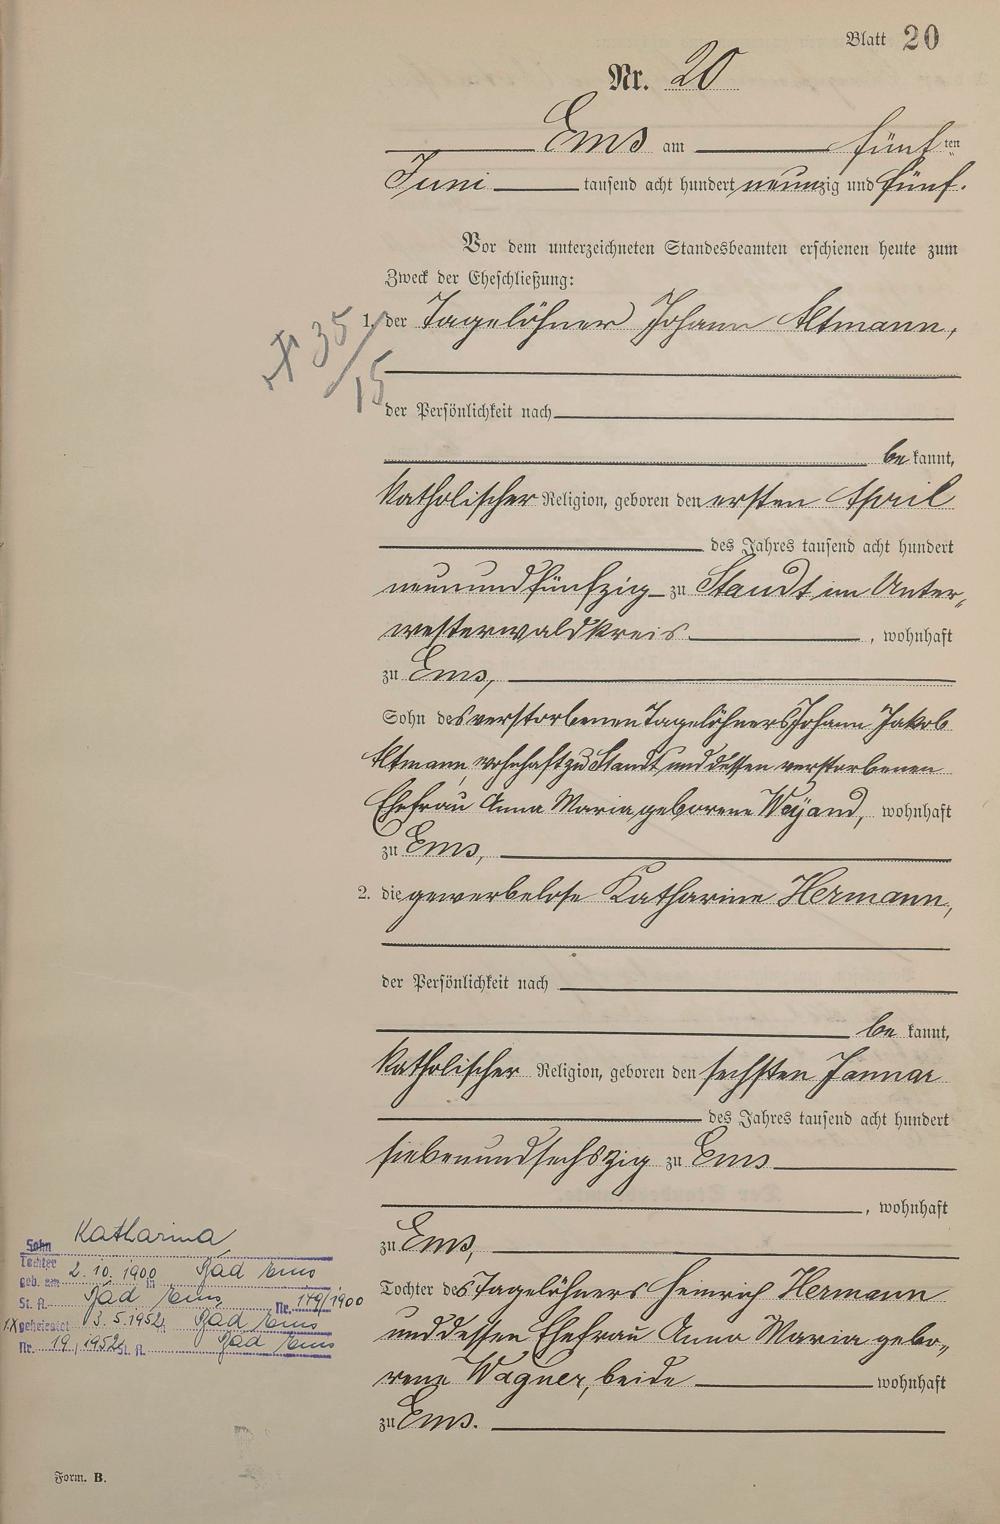 Blatt 20
Nr. 20
Ems am fünften
Juni tausend acht hundert neunzig und fünf.
Vor dem unterzeichneten Standesbeamten erschienen heute zum
Zweck der Eheschließung:
1. der Tagelöhner Johann Altmann,
+ 35/15
der Persönlichkeit nach
bekannt,
katholischer Religion, geboren den ersten April
des Jahres tausend acht hundert
neunundfünfzig zu Staudt im Unter-
westerwaldkreis, wohnhaft
zu Ems,
Sohn des verstorbenen Tagelöhners Johann Jakob
Altmann, wohnhaft zu Staudt und dessen verstorbenen
Ehefrau Anna Maria geborene Weÿand, wohnhaft
zu Ems,
2. die gewerbelose Katharine Hermann,
der Persönlichkeit nach
bekannt,
katholischer Religion, geboren den sechsten Januar
des Jahres tausend acht hundert
siebenundsechszig zu Ems
, wohnhaft
zu Ems,
Tochter des Tagelöhners Heinrich Hermann
und dessen Ehefrau Anna Maria gebo-
rene Wagner, beide wohnhaft
zu Ems.
Sohn Katharina,
Tochter
geb. am 2.10.1900 in Bad Ems
St. A. Bad Ems, Nr. 179/1900
1.X geheiratet 3.5.1952 in Bad Ems
Nr. 19, 1952 St. A. Bad Ems
Form. B.